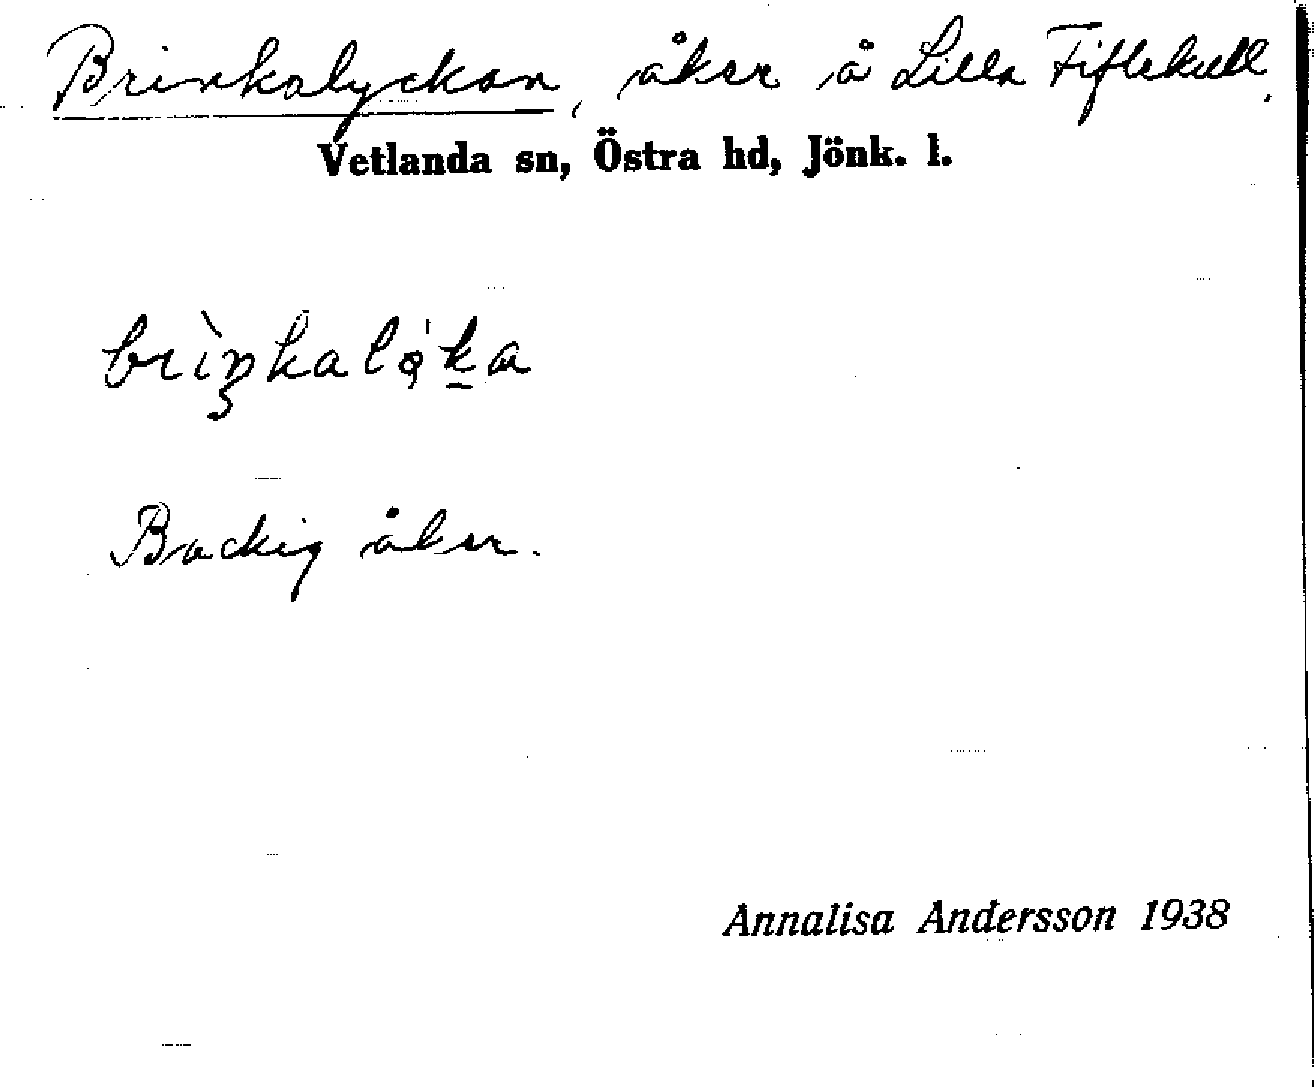 Brinkalyckan, åker å Lilla Fiflekull.
Vetlanda sn, Östra hd, Jönk. l.
Backig åker.
Annalisa Andersson 1938